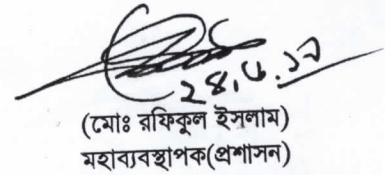 ২৪.৬.১৭
(মোঃ রফিকুল ইসলাম)
মহাব্যবস্থাপক(প্রশাসন)